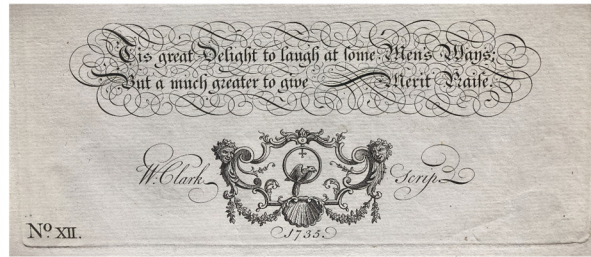 'Tis great Delight to laugh at some Men's Ways;
But a much greater to give Merit Praise.
W. Clark Scrip.
1735.
No. XII.